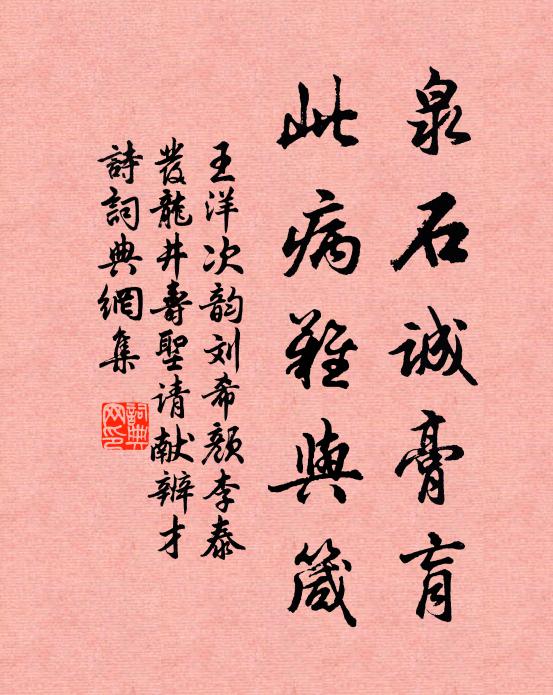 泉石诚膏肓
此病难与箴
王洋次韵刘希颜李泰
发龙井寿圣请献辨才
詩詞典網集
詞典网印